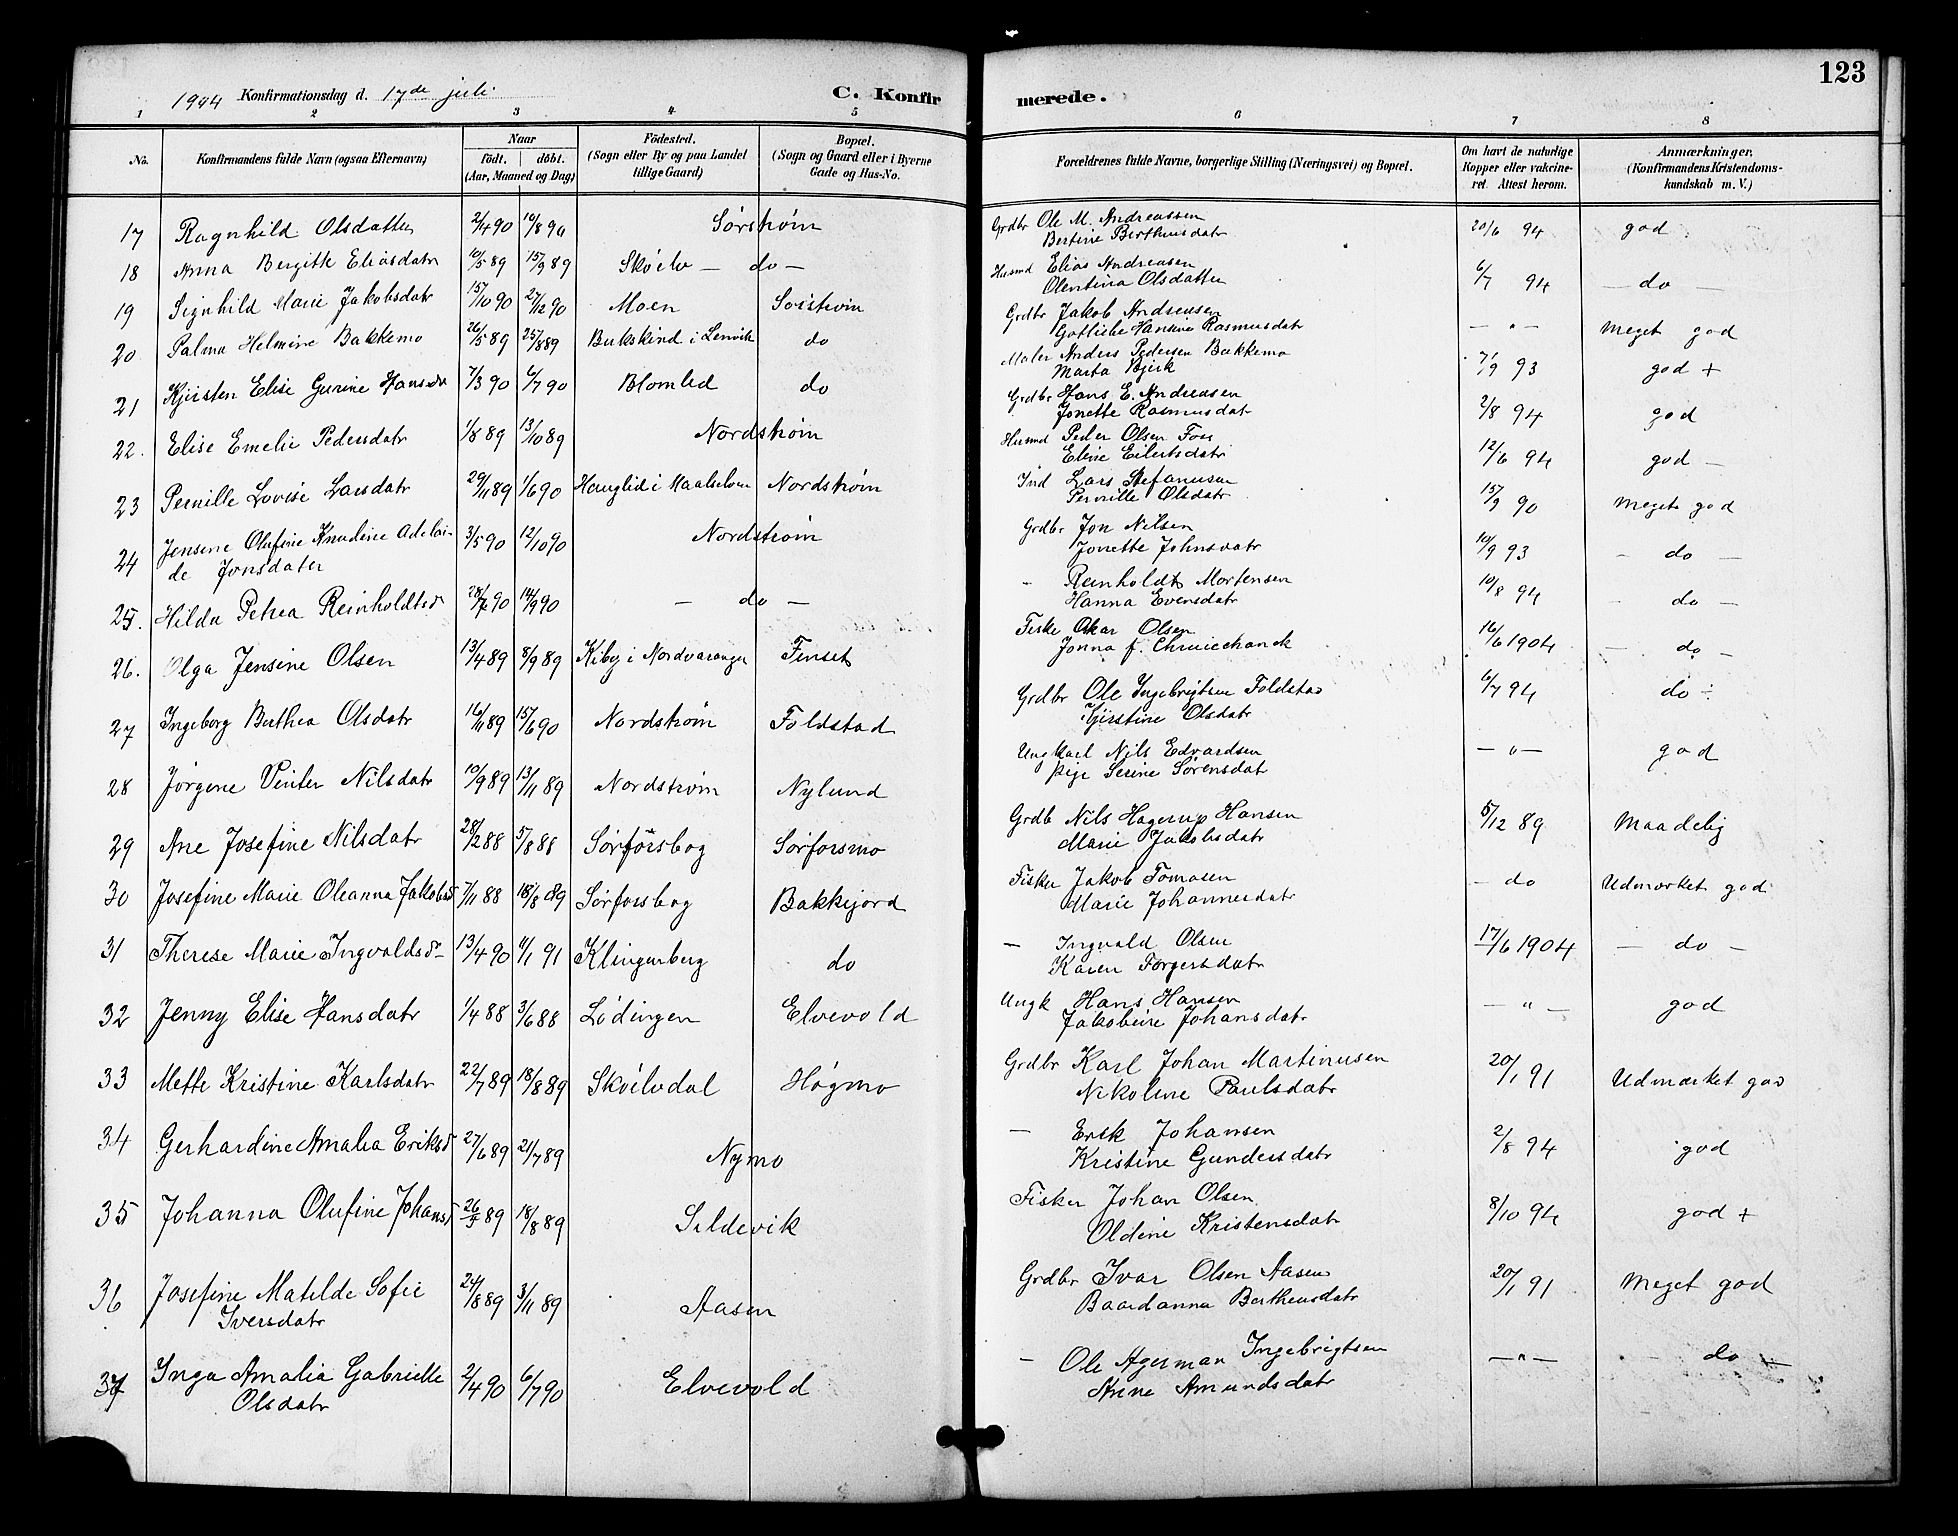 123
1904 Konfirmationsdag d. 17de juli.
C. Konfirmerede.
1 2 3 4 5 6 7 8
No.
Konfirmandens fulde Navn (ogsaa Efternavn)
Naar
födt. döbt.
(Aar, Maaned og Dag)
Födested.
(Sogn eller By og paa Landet
tillige Gaard)
Bopæl.
(Sogn og Gaard eller i Byerne
Gade og Hus-No.
Forældrenes fulde Navne, borgerlige Stilling (Næringsvei) og Bopæl.
Om havt de naturlige
Kopper eller vakcine-
ret. Attest herom.
Anmærkninger,
(Konfirmandens Kristendoms-
kundskab m. V.)
17 Ragnhild Olsdatter 2/4 90 10/8 90 Sørstrøm Grdbr Ole M. Andreassen 20/6 94 god
Bertine Berthusdatr
18 Anna Bergith Eliasdatr 10/5 89 15/9 89 Skøelv — do — Husmd Elias Andreasen 6/7 94 — do —
Olentina Olsdatter
19 Signhild Marie Jakobsdatr 15/10 90 27/12 90 Moen Sørstrøm Grdbr Jakob Andreasen — " — Meget god
Gotliebe Hansine Rasmusdatr
20 Palma Helmine Bakkemo 26/5 89 25/8 89 Bukskind i Lenvik do Maler Anders Pedersen Bakkemo 7/9 93 god +
Marta Bjerk
21 Kjirsten Elise Gurine Hansdr 7/3 90 6/7 90 Blomlid do Grdbr Hans E. Andreasen 2/8 94 god
Jonette Rasmusdatr
22. Elise Emelie Pedersdatr 1/8 89 13/10 89 Nordstrøm Husmd Peder Olsen Foss 12/6 94 god —
Eline Eilertsdatr
23 Pernille Lovise Larsdatr 29/11 89 1/6 90 Hauglid i Maalselven Nordstrøm Ind Lars Stefanusen 15/9 90 Meget god
Pernille Olsdatr
24 Jensine Olufine Knudine Adelai- 3/5 90 12/10 90 Nordstrøm Grdbr Jon Nilsen 10/9 93 — do —
de Jonsdater Jonette Johnsdatr
25. Hilda Petrea Reinholdtsd 90 14/9 90 — do — - Reinholdt Mortensen 10/8 94 - do —
Hanna Evensdatr
26. Olga Jensine Olsen 13/4 89 8/9 89 Kiby i Nordvaranger Finset Fiske Olsen 16/6 1904 — do —
Jonna f.
27 Ingeborg Berthea Olsdatr 16/11 89 15/6 90 Nordstrøm Foldstad Grdbr Ole Ingebrigtsen Foldstad 6/7 94 do ÷
Kjirstine Olsdatr
28 Jørgene Vinter Nilsdatr 10/9 89 13/11 89 Nordstrøm Nylund Ungkarl Nils Edvardsen — " — god
pige Serine Sørensdat
29 Ane Josefine Nilsdatr 28/2 88 5/8 88 Sørforsbog Sørforsmo Grdb Nils Hagerup Hansen 8/12 89 Maadelig
Marie Jakobsdatr
30 Josefine Marie Oleanna Jakobsd 7/11 88 18/8 89 Sørforsbog Bakkejord Fisker Jakob Tomasen — do Udmærket god
Marie Johannesdatr
31 Therese Marie Ingvaldsd 13/4 90 11/1 91 Klingenberg do — Ingvald Olsen 17/6 1904 — do —
Karen Torgersdatr
32 Jenny Elise Hansdatr 1/4 88 3/6 88 Lödingen Elvevold Ungk Hans Hansen — " — god
Jakobine Johansdatr
33 Mette Kristine Karlsdatr 22/7 89 18/8 89 Skøelvdal Høgmo Grdbr Karl Johan Martinusen 20/1 91 Udmærket god
Nikoline Paulsdatr
34 Gerhardine Amalia Eriksd 27/6 89 21/7 89 Nymo — Erik Johansen 2/8 94 god
Kristine Gundersdatr
35 Johanna Olufine Johansd 26/5 89 18/8 89 Sildevik Fisker Johan Olsen 8/10 94 god +
Oldine Kristensdatr
36 Josefine Matilde Sofie 24/8 89 3/11 89 Aasen Grdbr Ivar Olsen Aasen 20/1 91 Meget god
Iversdatr Baardanna Bertheusdatr
37 Inga Amalia Gabrielle 2/4 90 6/7 90 Elvevold — Ole Agerman Ingebrigtsen — " — - do +
Olsdatr Anne Amundsdatr